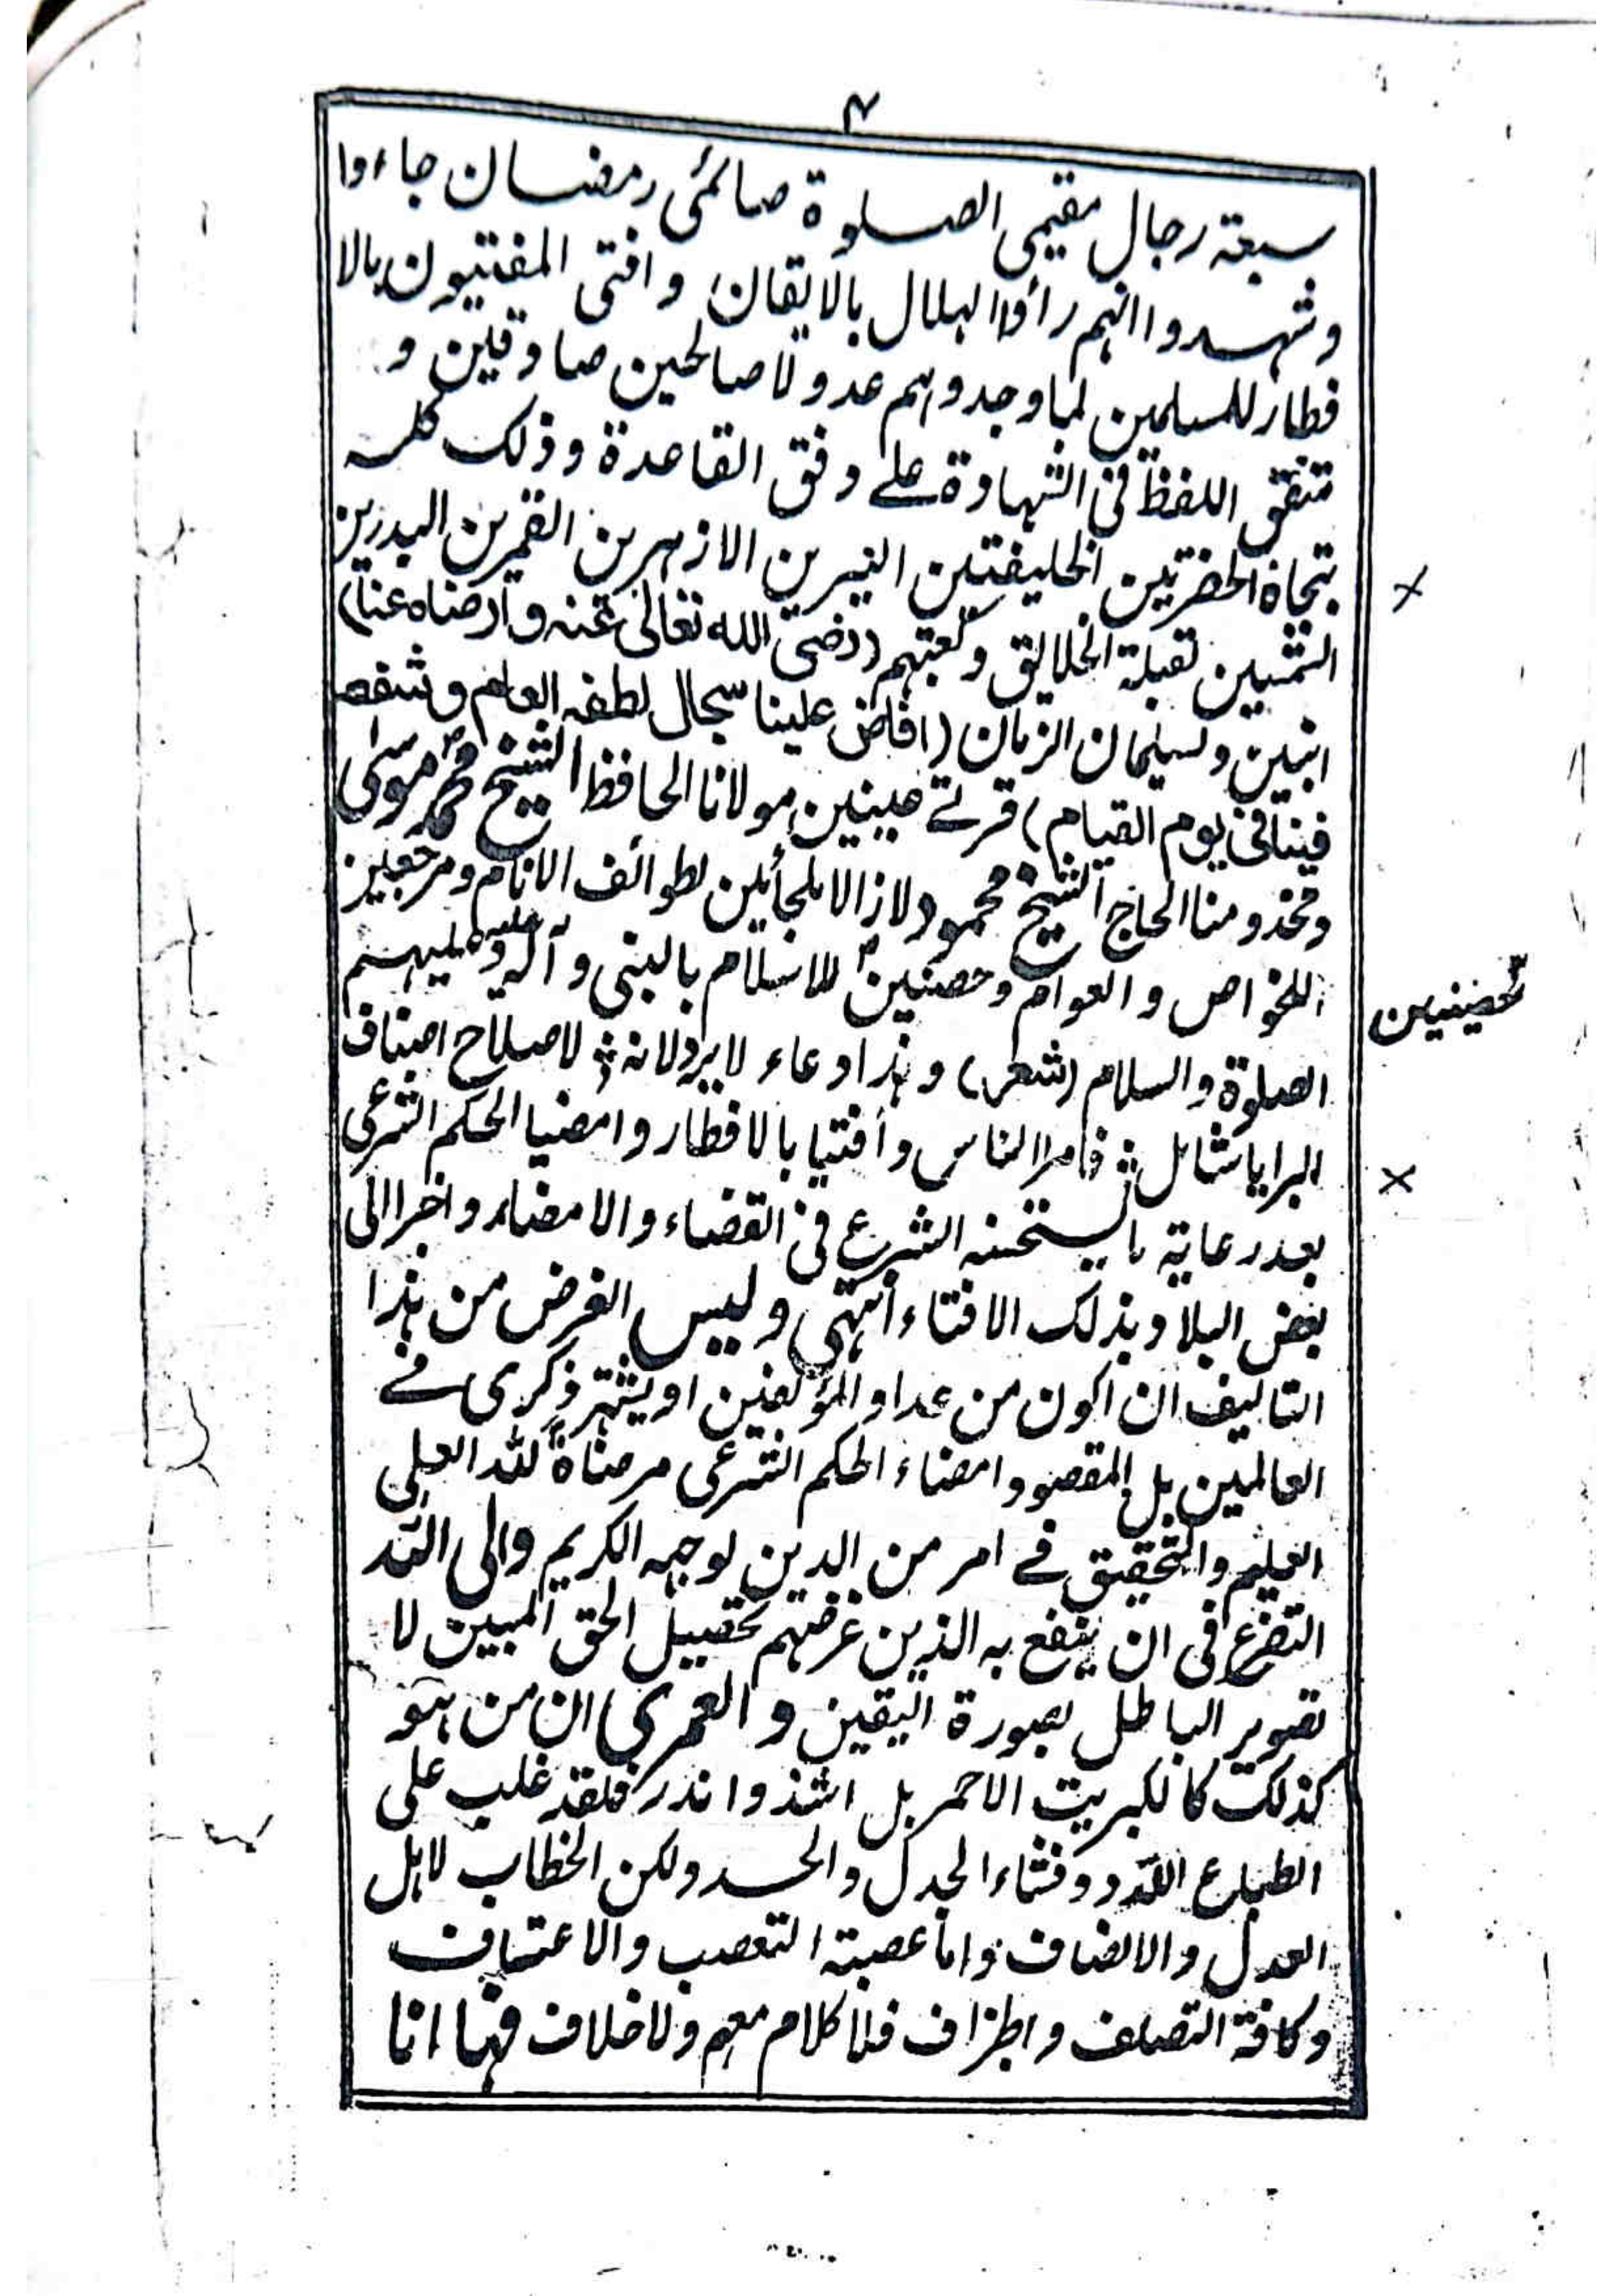 ٤
سبعة رجال مقيمى الصلوة صائمى رمضان جاءوا
وشهدوا انهم رأوا الهلال بالايقان وافتى المفتيون بالا
فطار للمسلمين لما وجدوهم عدولا صالحين صادقين و
متفق اللفظ فى الشهادة على وفق القاعدة وذلك كله
بتجاة الحضرتين الخليفتين النيرين الازهرين القمرين البدرين
الشمسين لقبلة الخلائق وكعبتهم (رضى الله تعالى عنه وارضاه عنا)
ابنين ولسليمان الزمان (افاض علينا سجال لطفه العام وشفعه
فينا فى يوم القيام) قرتے عينين مولانا الحافظ الشيخ محمد موسى
ومخدومنا الحاج الشيخ محمود لازالا ملجأين لطوائف الانام ومرجعين
للخواص والعوام وحصنين للاسلام بالنبى وآله عليه وعليهم
حصينين
الصلوة والسلام (شعر) وهذا دعاء لا يرد لانه لاصلاح اصناف
البرايا شامل فامرا الناس وافتيا بالافطار وامضيا الحكم الشرعى
بعد رعاية ما يستحسنه الشرع فى القضاء والامضاء واخبرا الى
بعض البلاد بذلك الافتاء انتهى وليس الغرض من هذا
التاليف ان اكون من عداد المؤلفين او يشتهر ذكرى فے
العالمين بل المقصود امضاء الحكم الشرعى مرضاةً لله العلى
العليم والتحقيق فے امر من الدين لوجهه الكريم والى الله
التضرع فى ان ينفع به الذين غرضهم تحصيل الحق المبين لا
تصوير الباطل بصورة اليقين و العمرى ان من هو
كذلك كالكبريت الاحمر بل اشذ واندر فلقد غلب على
الطباع اللدد وفشاء الجدل والحسد ولكن الخطاب لاهل
العدل والانصاف واما عصبة التعصب والاعتساف
وكافة التصلف والجزاف فلا كلام معهم ولا خلاف فها انا